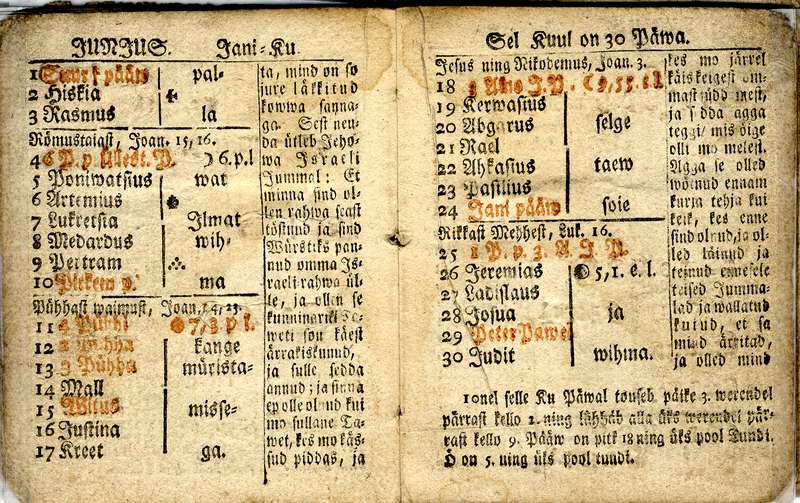 JUNJUS. Jani-Ku
1 pääw pal-
2 Hiskia
3 Rasmus la
Römustaiast, Joan. 15, 16.
4 6. p. l
5 Poniwatsius wat
6 Artemius
7 Lukretsia Jlmat
8 Medardus wih-
9 Pertram
10 ma
Pühhast waimust, Joan. 14, 23.
11 7, 3 p l.
12 Pühha kange
13 3 Pühha mürista-
14 Mall
15 Witus misse-
16 Justina
17 Kreet ga.
ta, mind on so
jure läkkitud
kowwa sanna-
ga. Sest neu-
da ütleb Jeho-
wa Israeli
Jummal: Et
minna sind ol-
len rahwa seast
töstnud ja sind
Würstiks pan-
nud omma Js-
raeli rahwa ül-
le, ja ollen se
kunninariki Ta-
weti sou käest
ärrakiskunud,
ja sulle sedda
annud; ja sinna
ep olle olnud kui
mo sullane Ta-
wet, kes mo käs-
sud piddas, ja
Sel Kuul on 30 Päwa.
Jesus ning Nikodemus, Joan. 3.
18
19 Kerwasius
20 Abgarus selge
21 Rael
22 Ahkasius taew
23 Pasilius
24 Jani pääw soie
Rikkast Mehhest, Luk. 16.
25
26 Jeremias 5, 1. e. l.
27 Ladislaus
28 Josua ja
29 Peter Pawel
30 Judit wihma.
kes mo järrel
käis keigest om-
mast süddamest,
ja sedda agga
teggi, mis öige
olli mo melest.
Agga se olled
wötnud enaam
kurja tehja kui
keik, kes enne
sind olnud, ja ol-
led läinud ja
teinud ennesele
teised Jumma-
lad ja wallatud
kujud, et sa
mind ärritad,
ja olled mind
10nel selle Ku Päwal touseb päike 3. werendel
pärrast kello 2. ning lähhäb alla üks werendel pär-
rast kello 9. Pääw on pitk 18 ning üks pool Tundi.
Ö on 5. ning üks pool tundi.